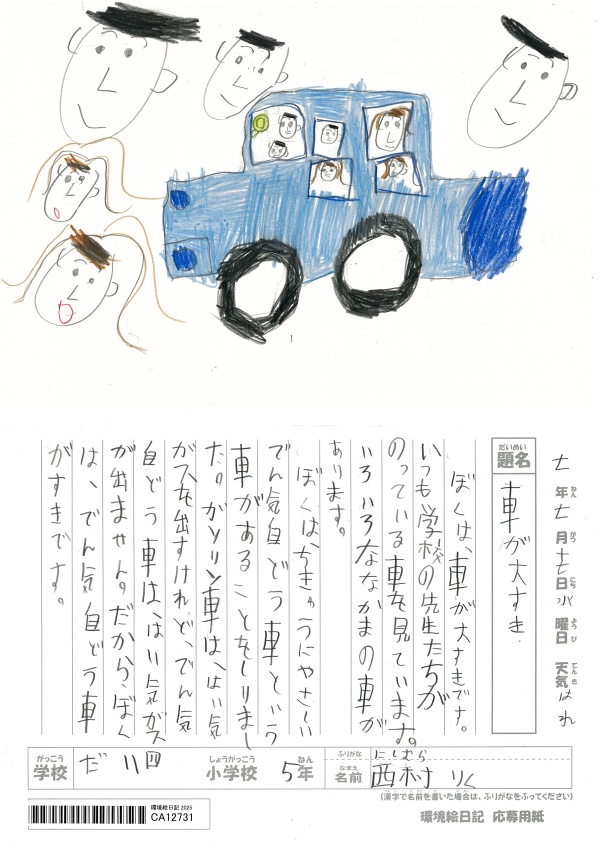 七年七月十七日水曜日 天気はれ
ねん がつ にち ようび てんき
だいめい
題名 車が大すき
ぼくは、車が大すきです。
いつも学校の先生たちが
のっている車を見ています。
いろいろななかまの車が
あります。
ぼくは、ちきゅうにやさしい
でん気自どう車という
車があることをしりまし
た。ガソリン車は、はい気
ガスを出すけれど、でん気
自どう車は、はい気ガス
が出ません。だから、ぼく
は、でん気自どう車
がすきです。
がっこう しょうがっこう ねん
学校 だ 川 小学校 5年
ふりがな にしむら
なまえ
名前 西村 りく
(漢字で名前を書いた場合は、ふりがなをふってください)
環境絵日記 2025
CA12731
環境絵日記 応募用紙